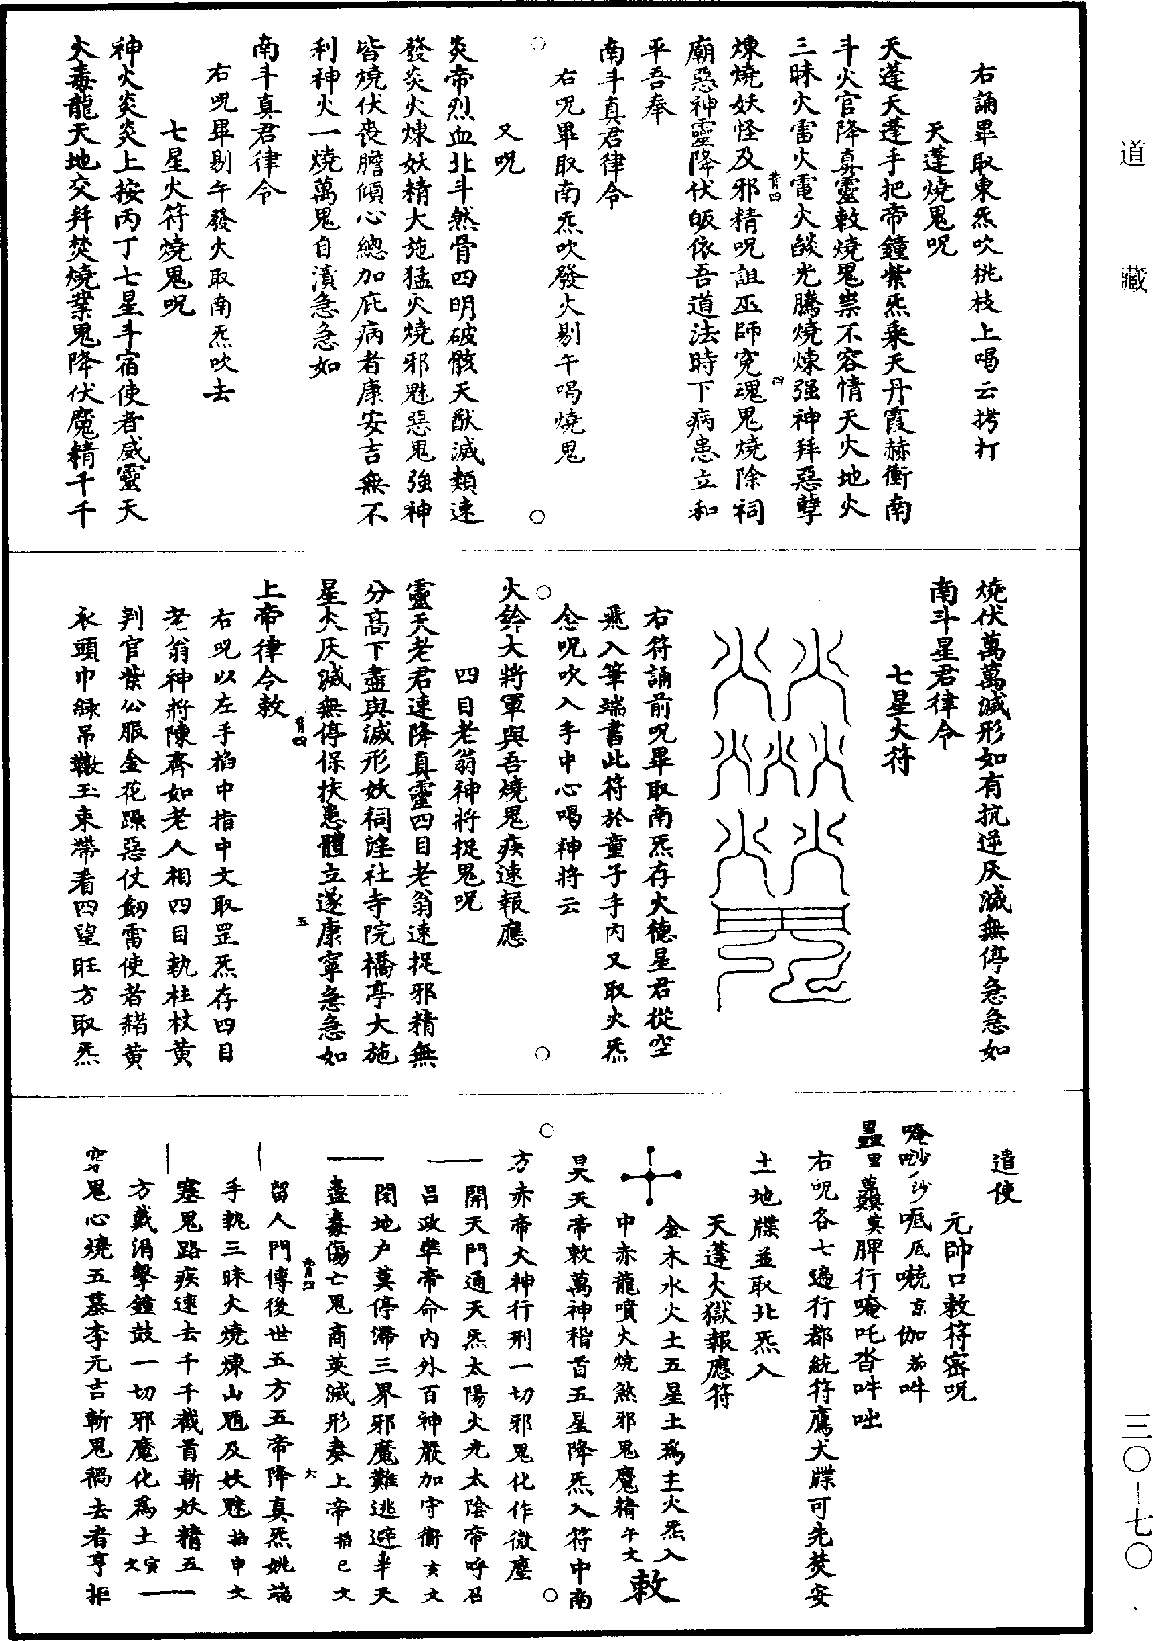 道藏
右誦畢取東炁吹桃枝上喝云拷打
天蓬燒鬼呪
天蓬天蓬手把帝鐘紫炁乘天丹霞赫衝南
斗火官降真靈敕燒鬼祟不容情天火地火
三昧火雷火電火燄光騰燒煉强神拜惡孽
煉燒妖怪及邪精呪詛巫師寃魂鬼燒除祠
廟惡神靈降伏皈依吾道法時下病患立和
平吾奉
南斗真君律令
右呪畢取南炁吹發火剔午喝燒鬼
又呪
炎帝烈血北斗然骨四明破骸天猷滅類速
發炎火煉妖精大施猛火燒邪魅惡鬼強神
皆燒伏喪膽傾心總加庇病者康安吉無不
利神火一燒萬鬼自潰急急如
南斗真君律令
右呪畢剔午發火取南炁吹去
七星火符燒鬼呪
神火炎炎上按丙丁七星斗宿使者威靈天
火毒龍天地交幷焚燒業鬼降伏魔精千千
燒伏萬萬滅形如有抗逆灰滅無停急急如
南斗星君律令
七星火符
右符誦前呪畢取南炁存火德星君從空
飛入筆端書此符於童子手內又取火炁
念呪吹入手中心喝神將云
火鈴大將軍與吾燒鬼疾速報應
四目老翁神將捉鬼呪
靈天老君速降真靈四目老翁速捉邪精無
分高下盡與滅形妖祠淫社寺院橋亭大施
星火灰滅無停保扶患體立遂康寧急急如
上帝律令敕
右呪以左手掐中指中文取罡炁存四目
老翁神將陳齊如老人相四目執柱杖黃
判官葉公服金花躁惡仗劒雷使者赭黃
衣頭巾綠吊𩌏玉束帶看四望旺方取炁
遣使
元帥口敕符密呪
右呪各七遍行都統符鷹犬牒可先焚安
土地牒並取北炁入
天蓬火獄報應符
金木水火土五星土爲主火炁入
中赤龍噴火燒煞邪鬼魔精午文
敕
昊天帝敕萬神稽首五星降炁入符中南
方赤帝火神行刑一切邪鬼化作微塵
開天門通天炁太陽火光太陰帝呼召
呂政華帝命內外百神嚴加守衛亥文
閉地户莫停滯三界邪魔難逃避奉天
盡毒傷亡鬼商英滅形奏上帝掐巳文
留人門傳後世五方五帝降真炁姚端
手執三昧火燒煉山魈及妖魅掐申文
塞鬼路疾速去千千截首斬妖精五
方戴涓擊鐘鼓一切邪魔化爲土寅文
穿鬼心燒五墓李元吉斬鬼禍去者亨拒
三〇—七〇